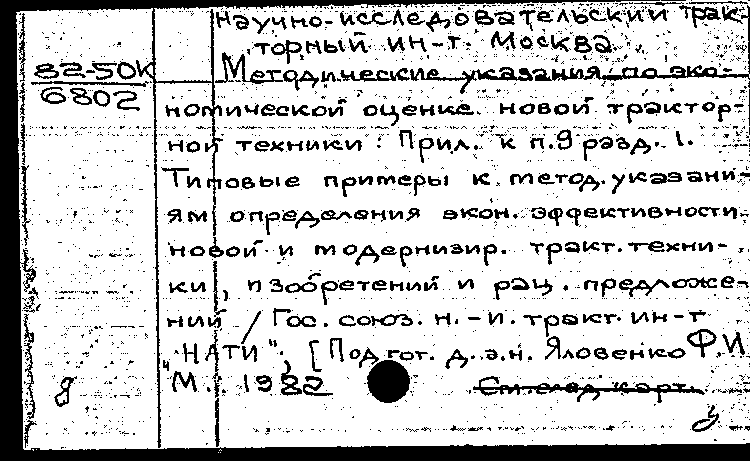 Научно-исследовательский трак-
торный ин-т. Москва
82-50К
6802
Методические указания по эко-
номической оценке новой трактор-
ной техники : Прил. к п.9 разд. 1.
Типовые примеры к метод. указани-
ям определения экон. эффективности
новой и модернизир. тракт. техни-
ки, изобретений и рац. предложе-
ний / Гос. союз. н.-и. тракт. ин-т
"НАТИ"; [Подгот. д.э.н. Яловенко Ф.И
М., 1982
См. след. карт.